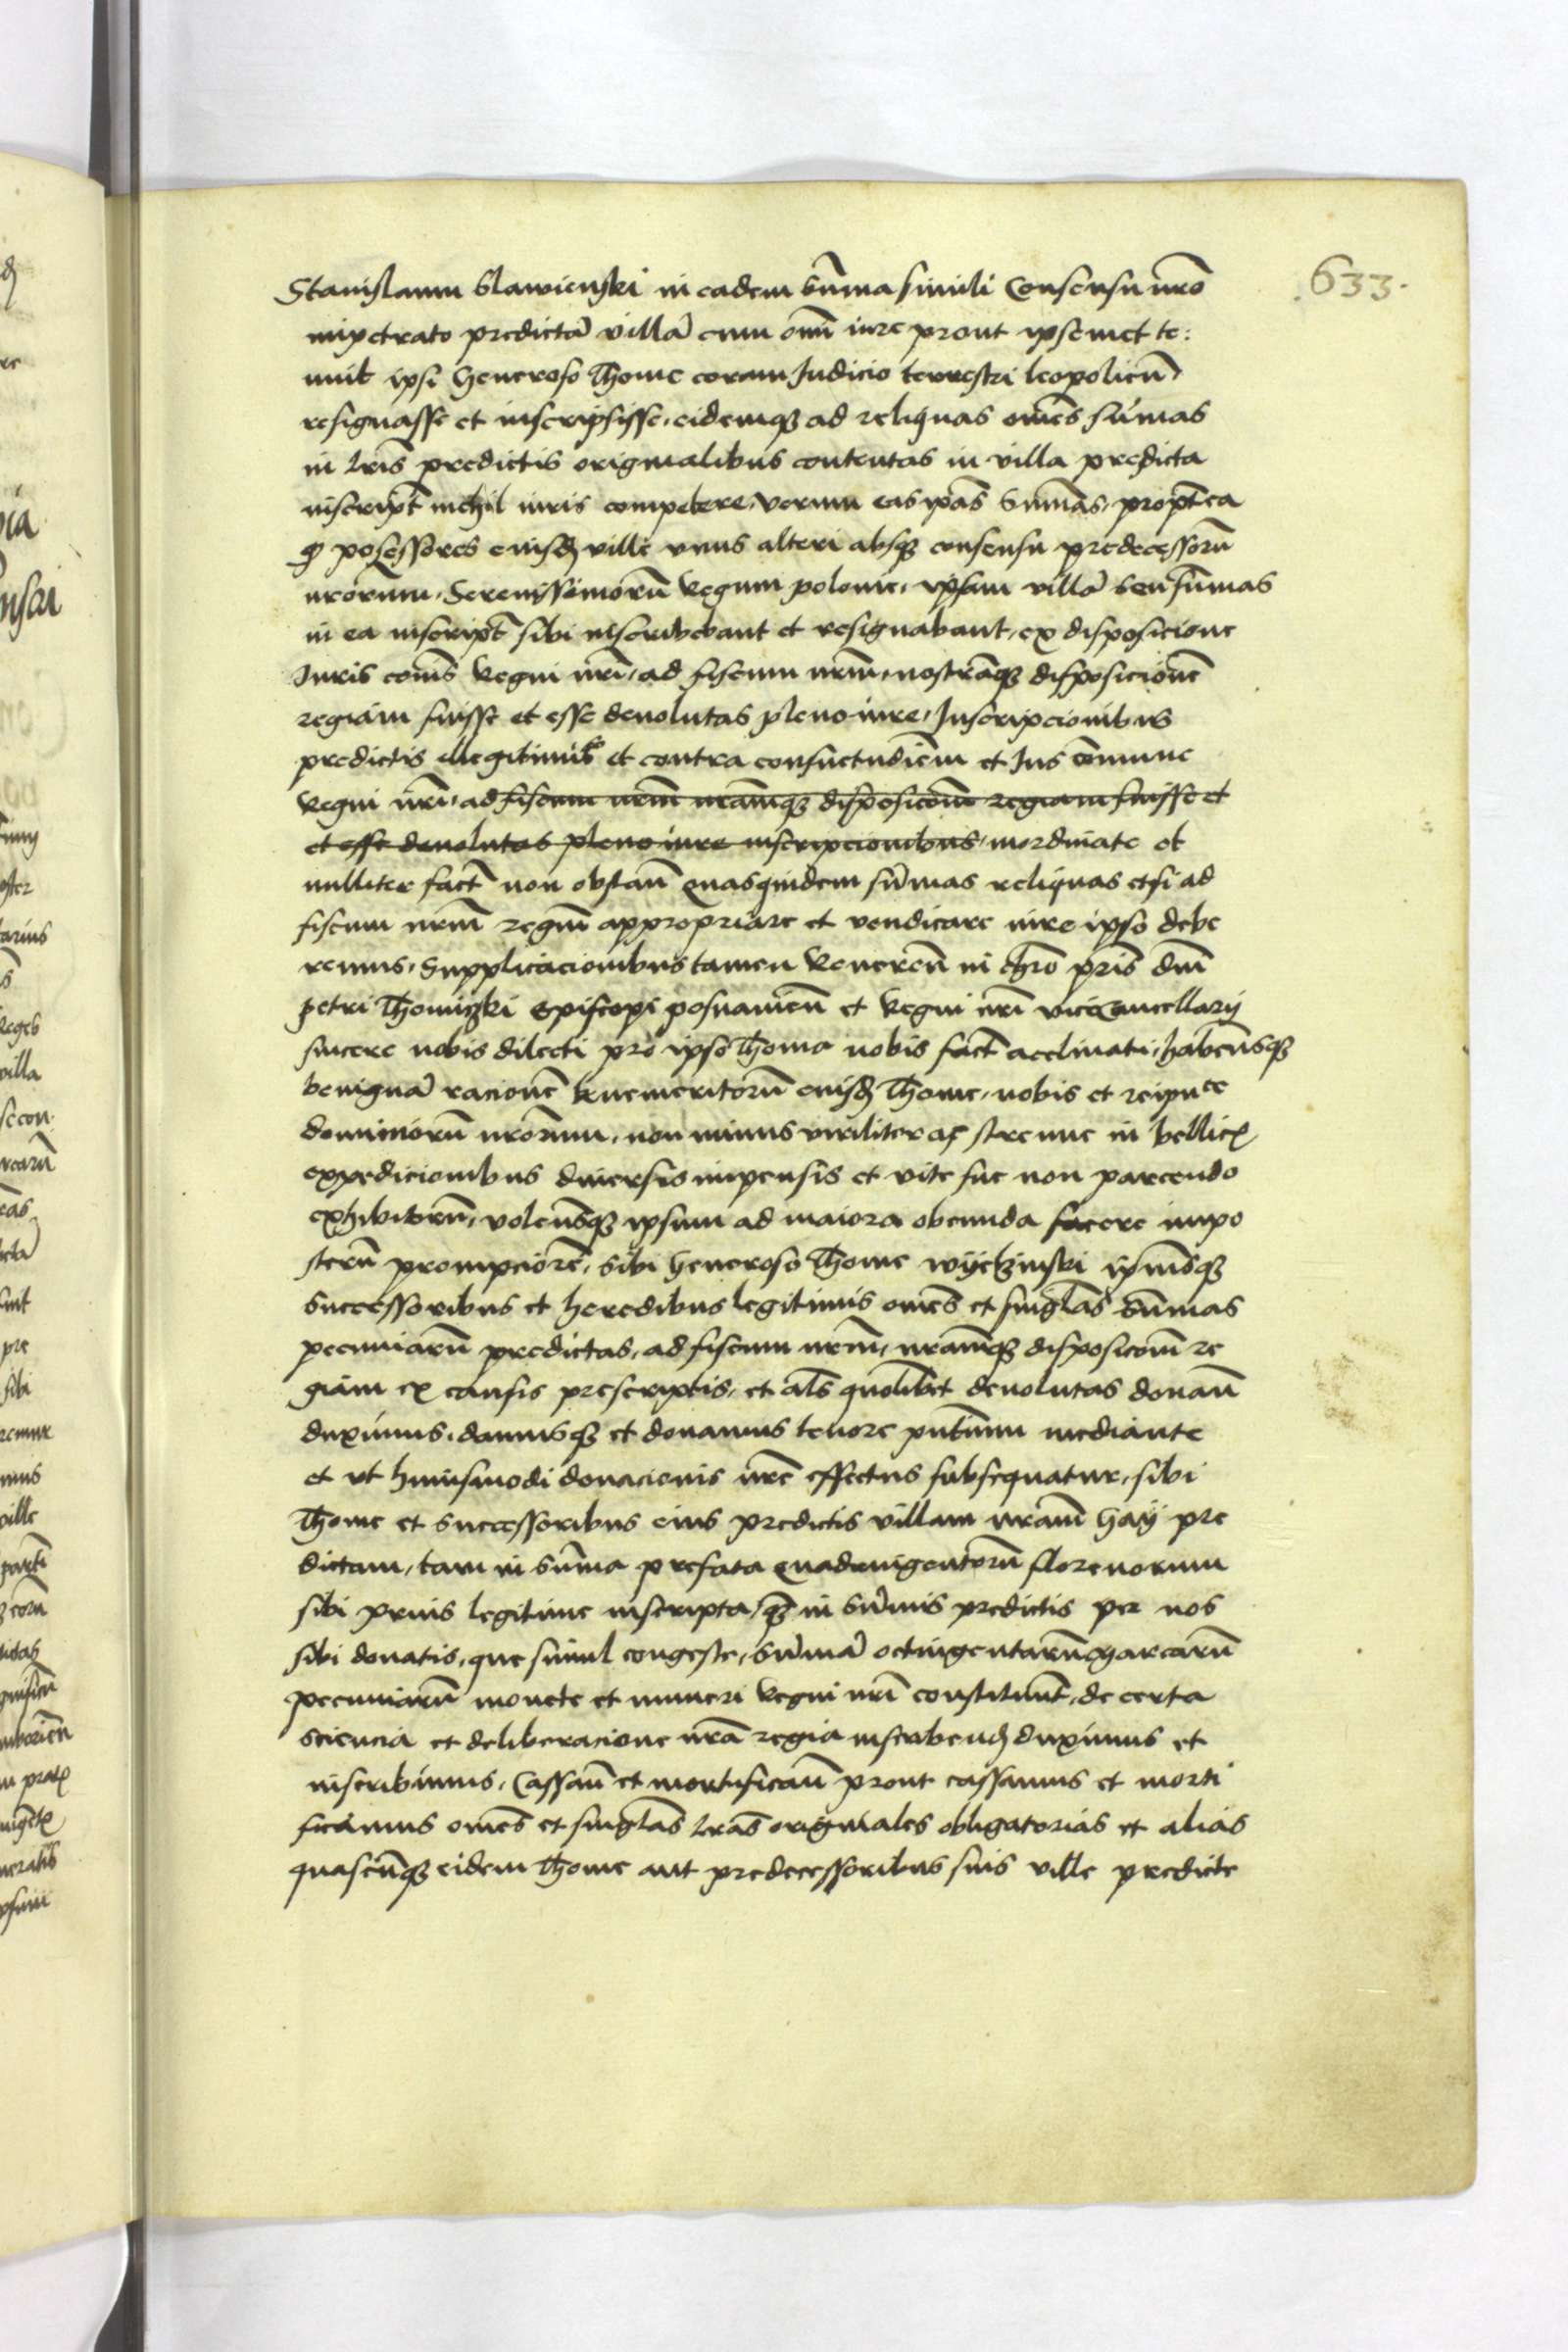 633.
Stanislaum Slawienski in eadem sum̄a simili Consensu nr̄o
impetrato predictā villā cum om̄i iure prout ipsemet te:
nuit ipsi Generoso Thome coram Judicio terrestri leopolieñ
resignasse et inscripsisse, eidemqȝ ad reliquas om̄es sūmas
in lr̄is predictis originalibus contentas in villa predicta
inscript̄ nichil iuris competere, verum eas ip̄as Sum̄as, propt̄ea
ꝙ possessores eiusdȝ ville vnus alteri absqȝ consensu predecessorū
nr̄orum, Serenissimorū Regum polonie, ipsam villā seu sum̄as
in ea inscript̄ sibi inscribebant et resignabant, ex disposicione
Juris com̄is Regni nr̄i, ad fiscum nr̄m, nostramqȝ disposicionē
regiam fuisse et esse devolutas pleno iure, Inscripcionibus
predictis illegitimis et contra consuetudiēm et Jus cōmune
Regni nr̄i, ad fiscum nr̄m nr̄amqȝ disposicom̄ regiam fuisse et
et esse devolutas pleno iure inscripcionibus, inordinate et
nulliter fact̄ non obstañ Quasquidem sūmas reliquas etsi ad
fiscum nr̄m regiū appropriare et vendicare iure ipso debe
remus, Supplicacionibus tamen Reverend̄ in chr̄o pr̄is dn̄i
petri Thomiczki Episcopi posnanieñ et Regni nr̄i viceCancellarij
sincere nobis dilecti pro ipso Thoma nobis fact̄ acclinati, habeñsqȝ
benignā racionē benemeritorū eiusdȝ Thome, nobis et reipu^ce
dominiorū nr̄orum, non minus viriliter ac strenue in bellicꝭ
expedicionibus diuersis impensis et vite sue non parcendo
exhibitorū, voleñsqȝ ipsum ad maiora obeunda facere inpo
sterū prompciorē, sibi Generoso Thome wyetzinski ipsiusqȝ
successoribus et heredibus legitimis om̄es et singl̄as sum̄as
pecuniarū predictas, ad fiscum nr̄m, nr̄amqȝ disposicom̄ re
giam ex causis prescriptis, et al̄s quolibet devolutas donañ
duximus, damusqȝ et donamus tenore pn̄tium mediante
et vt huiusmodi donacionis nr̄e effectus subsequatur, sibi
Thome et successoribus eius predictis villam nr̄am Hay pre
dictam, tam in sum̄a prefata Quadringentorū florenorum
sibi prius legitime inscripta, qȝ in sum̄is predictis per nos
sibi donatis, que simul congeste, sum̄ā octingentarū Marcarū
pecuniarū monete et numeri Regni nr̄i constituunt, de certa
sciencia et deliberacione nr̄a regia inscribendȝ duximus et
inscribimus, Cassañ et mortificañ prout cassamus et morti
ficamus om̄es et singl̄as lr̄as originales obligatorias et alias
quascūqȝ eidem Thome aut predecessoribus suis ville predicte